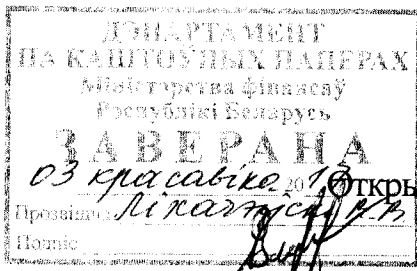 ДЭПАРТАМЕНТ
ПА КАШТОЎНЫХ ПАПЕРАХ
Міністэрства фінансаў
Рэспублікі Беларусь
ЗАВЕРАНА
03 красавіка 201
Откры
Прозвішча
Подпіс